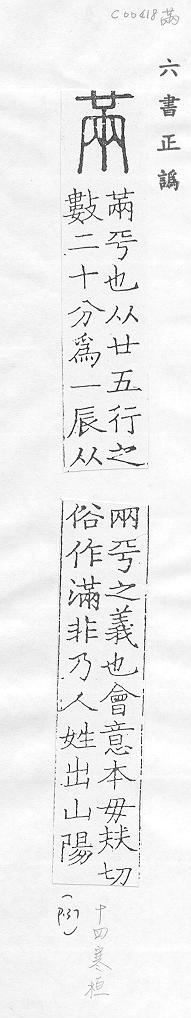 C00418 㒼
六書正譌
㒼
㒼平也从廿五行之
數二十分爲一辰从
兩平之義也會意本毋㚘切
俗作滿非乃人姓出山陽
(P.37)
十四寒桓